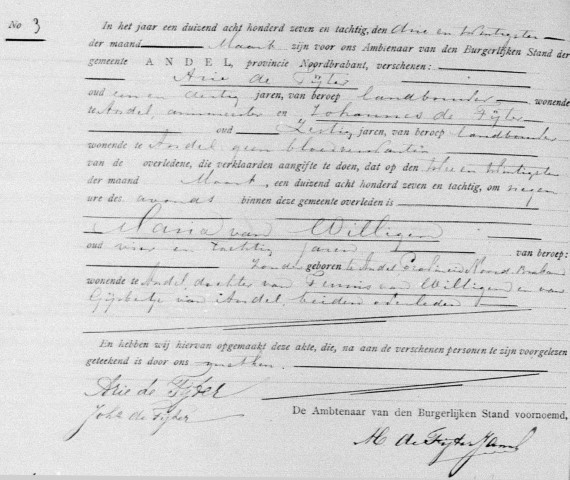 No 3 In het jaar een duizend acht honderd zeven en tachtig, den drie en twintigsten
der maand Maart zijn voor ons Ambtenaar van den Burgerlijken Stand der
gemeente ANDEL, provincie Noordbrabant, verschenen:
Arie de Fijter
oud een en dertig jaren, van beroep landbouwer wonende
te Andel, en Johannes de Fijter
oud Zestig jaren, van beroep landbouwer
wonende te Andel geen bloedverwanten
van de overledene, die verklaarden aangifte te doen, dat op den twee en twintigsten
der maand Maart, een duizend acht honderd zeven en tachtig, om negen
ure des avonds binnen deze gemeente overleden is
Maria van Willigen
oud vier en tachtig jaren van beroep:
zonder geboren te Andel Provincie Noord Braband
wonende te Andel, dochter van Teunis van Willigen en van
Gijsbertje van Andel, beiden overleden
En hebben wij hiervan opgemaakt deze akte, die, na aan de verschenen personen te zijn voorgelezen
geteekend is door ons
Arie de Fijter
Joh de Fijter
De Ambtenaar van den Burgerlijken Stand voornoemd,
M de Fijter